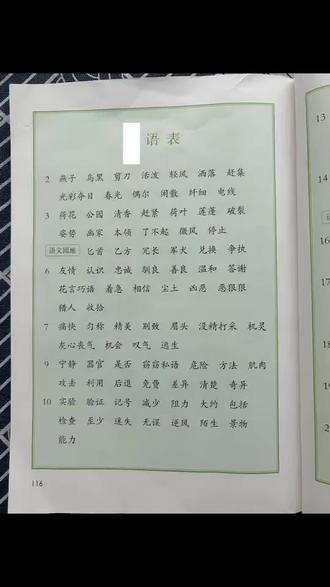 语表
2 燕子 乌黑 剪刀 活泼 轻风 洒落 赶集
光彩夺目 春光 偶尔 闲散 纤细 电线
3 荷花 公园 清香 赶紧 荷叶 莲蓬 破裂
姿势 画家 本领 了不起 微风 停止
语文园地 匕首 乙方 冗长 军犬 兑换 争执
6 友情 认识 忠诚 驯良 善良 温和 答谢
花言巧语 着急 相信 尘土 凶恶 恶狠狠
猎人 收拾
7 痛快 匀称 精美 别致 眉头 没精打采 机灵
灰心丧气 机会 叹气 逃生
9 宁静 器官 是否 窃窃私语 危险 方法 肌肉
攻击 利用 后退 免费 差异 清楚 奇异
10 实验 验证 记号 减少 阻力 大约 包括
检查 至少 迷失 无误 逆风 陌生 景物
能力
116
13
16